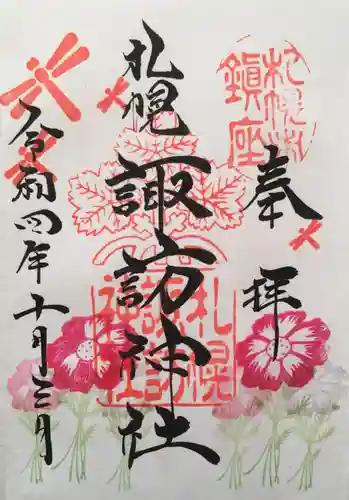 奉拝
札幌鎮座
札幌諏訪神社
札幌諏訪神社
令和四年十月三日